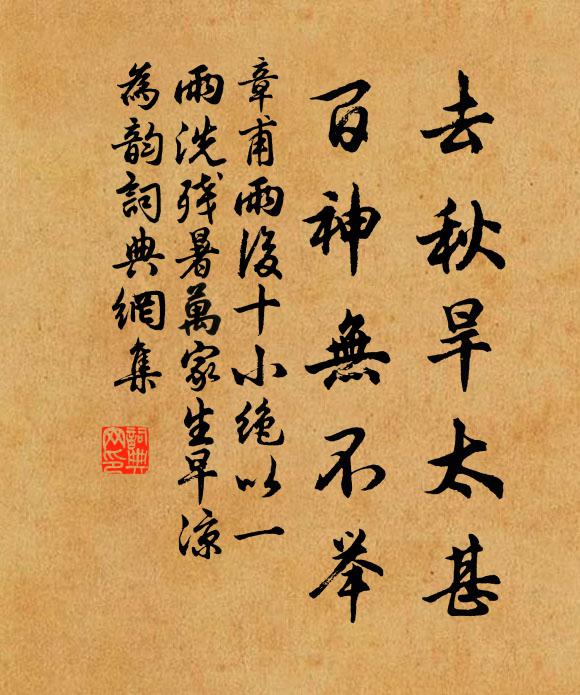 去秋旱太甚
百神無不举
章甫雨後十小絶以一
雨洗残暑萬家生早涼
為韵詞典網集
詞典网印